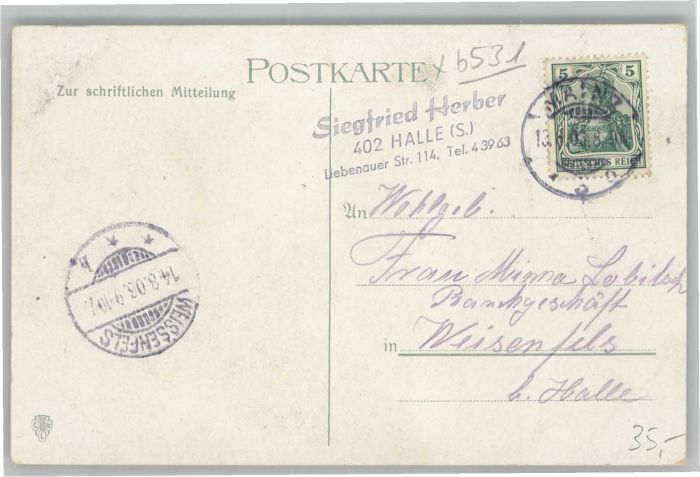 POSTKARTE
x 6531
Zur schriftlichen Mitteilung
Siegfried Herber
402 HALLE (S.)
Liebenauer Str. 114, Tel. 43963
5 5
DEUTSCHES REICH
MAINZ
An Wohlgeb.
Frau Minna Lobitsch
Bankgeschäft
in Weisenfels
b. Halle
14.8.06.9-10V.
WEISSENFELS
h
35,-